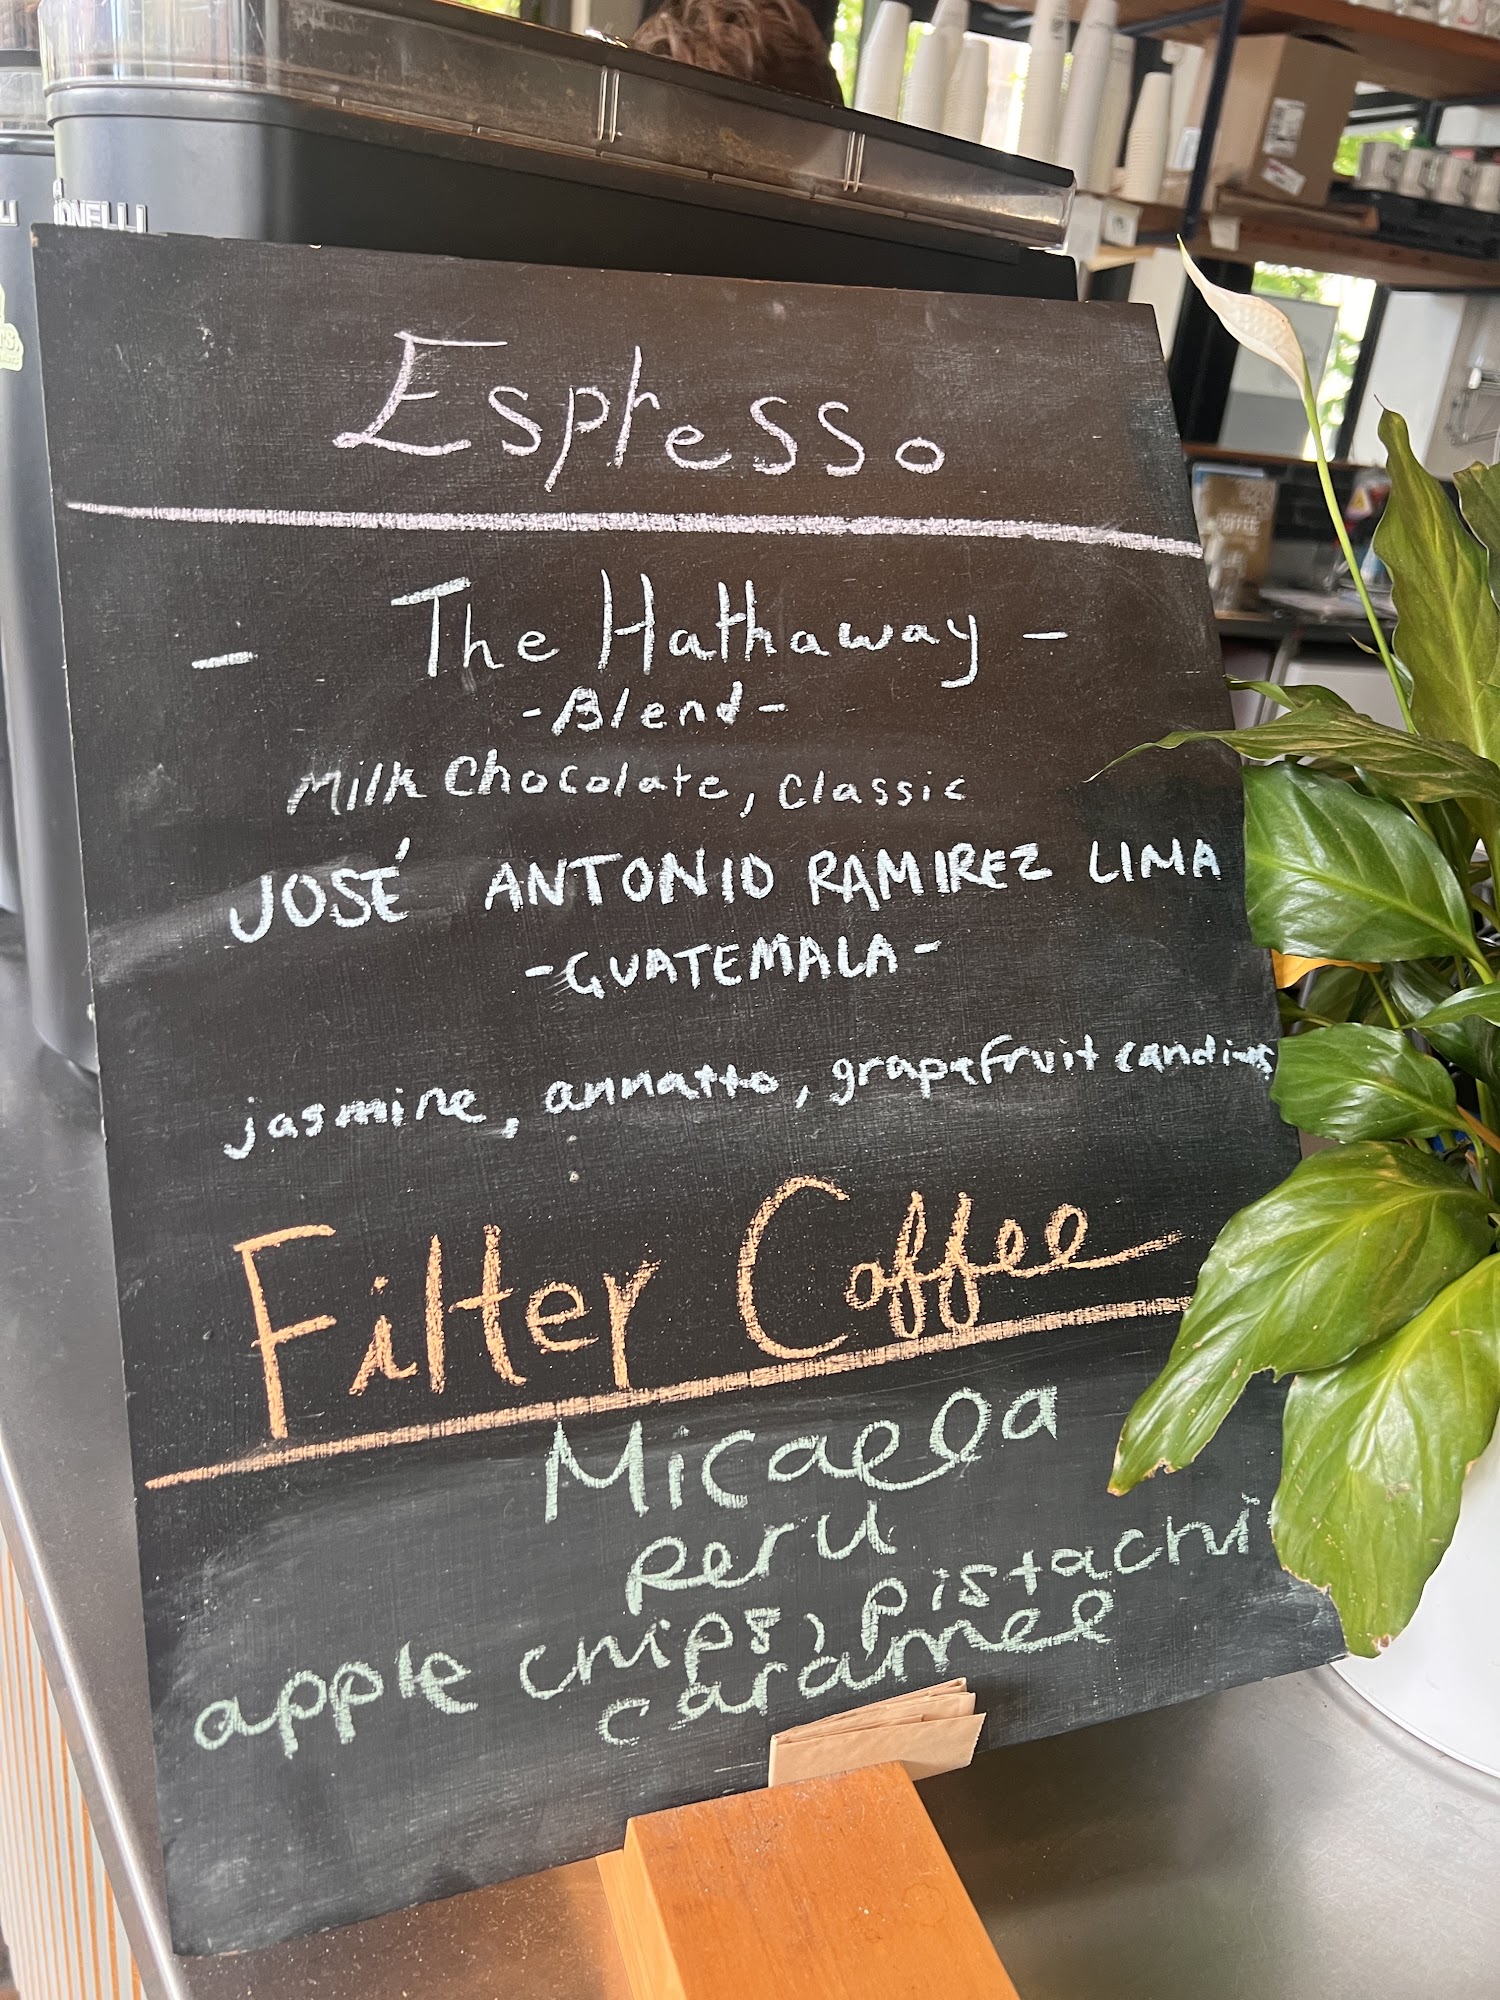 Espresso
- The Hathaway -
-Blend-
Milk Chocolate, Classic
JOSÉ ANTONIO RAMIREZ LIMA
-GUATEMALA-
jasmine, annatto, grapefruit candies
Filter Coffee
Micaela
peru
apple chips, pistachio
caramel
COFFEE